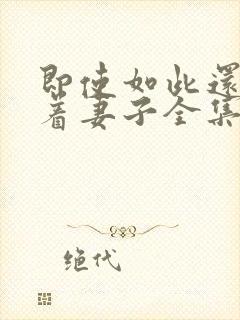 即使如此还
着妻子全集
绝代